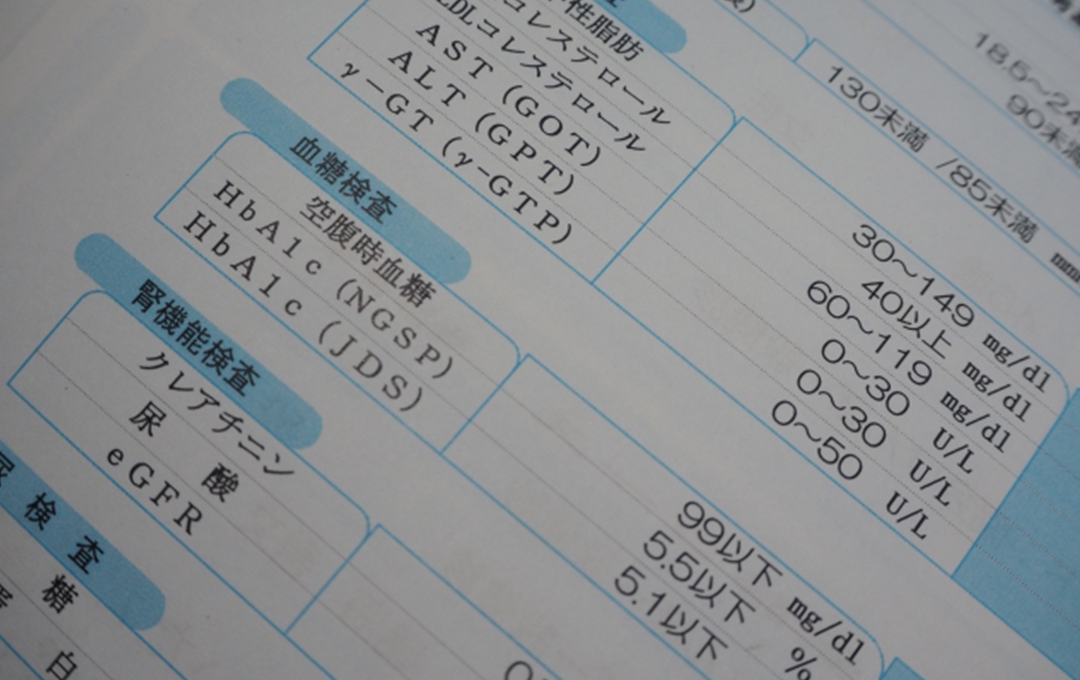 性脂肪
コレステロール
LDLコレステロール
AST (GOT)
ALT (GPT)
γ-GT (γ-GTP)
18.5~24
90未満
130未満 /85未満
30~149 mg/dl
40以上 mg/dl
60~119 mg/dl
0~30 U/L
0~30 U/L
0~50 U/L
血糖検査
空腹時血糖
HbA1c (NGSP)
HbA1c (JDS)
99以下 mg/dl
5.5以下 %
5.1以下
腎機能検査
クレアチニン
尿酸
eGFR
尿検査
糖
白